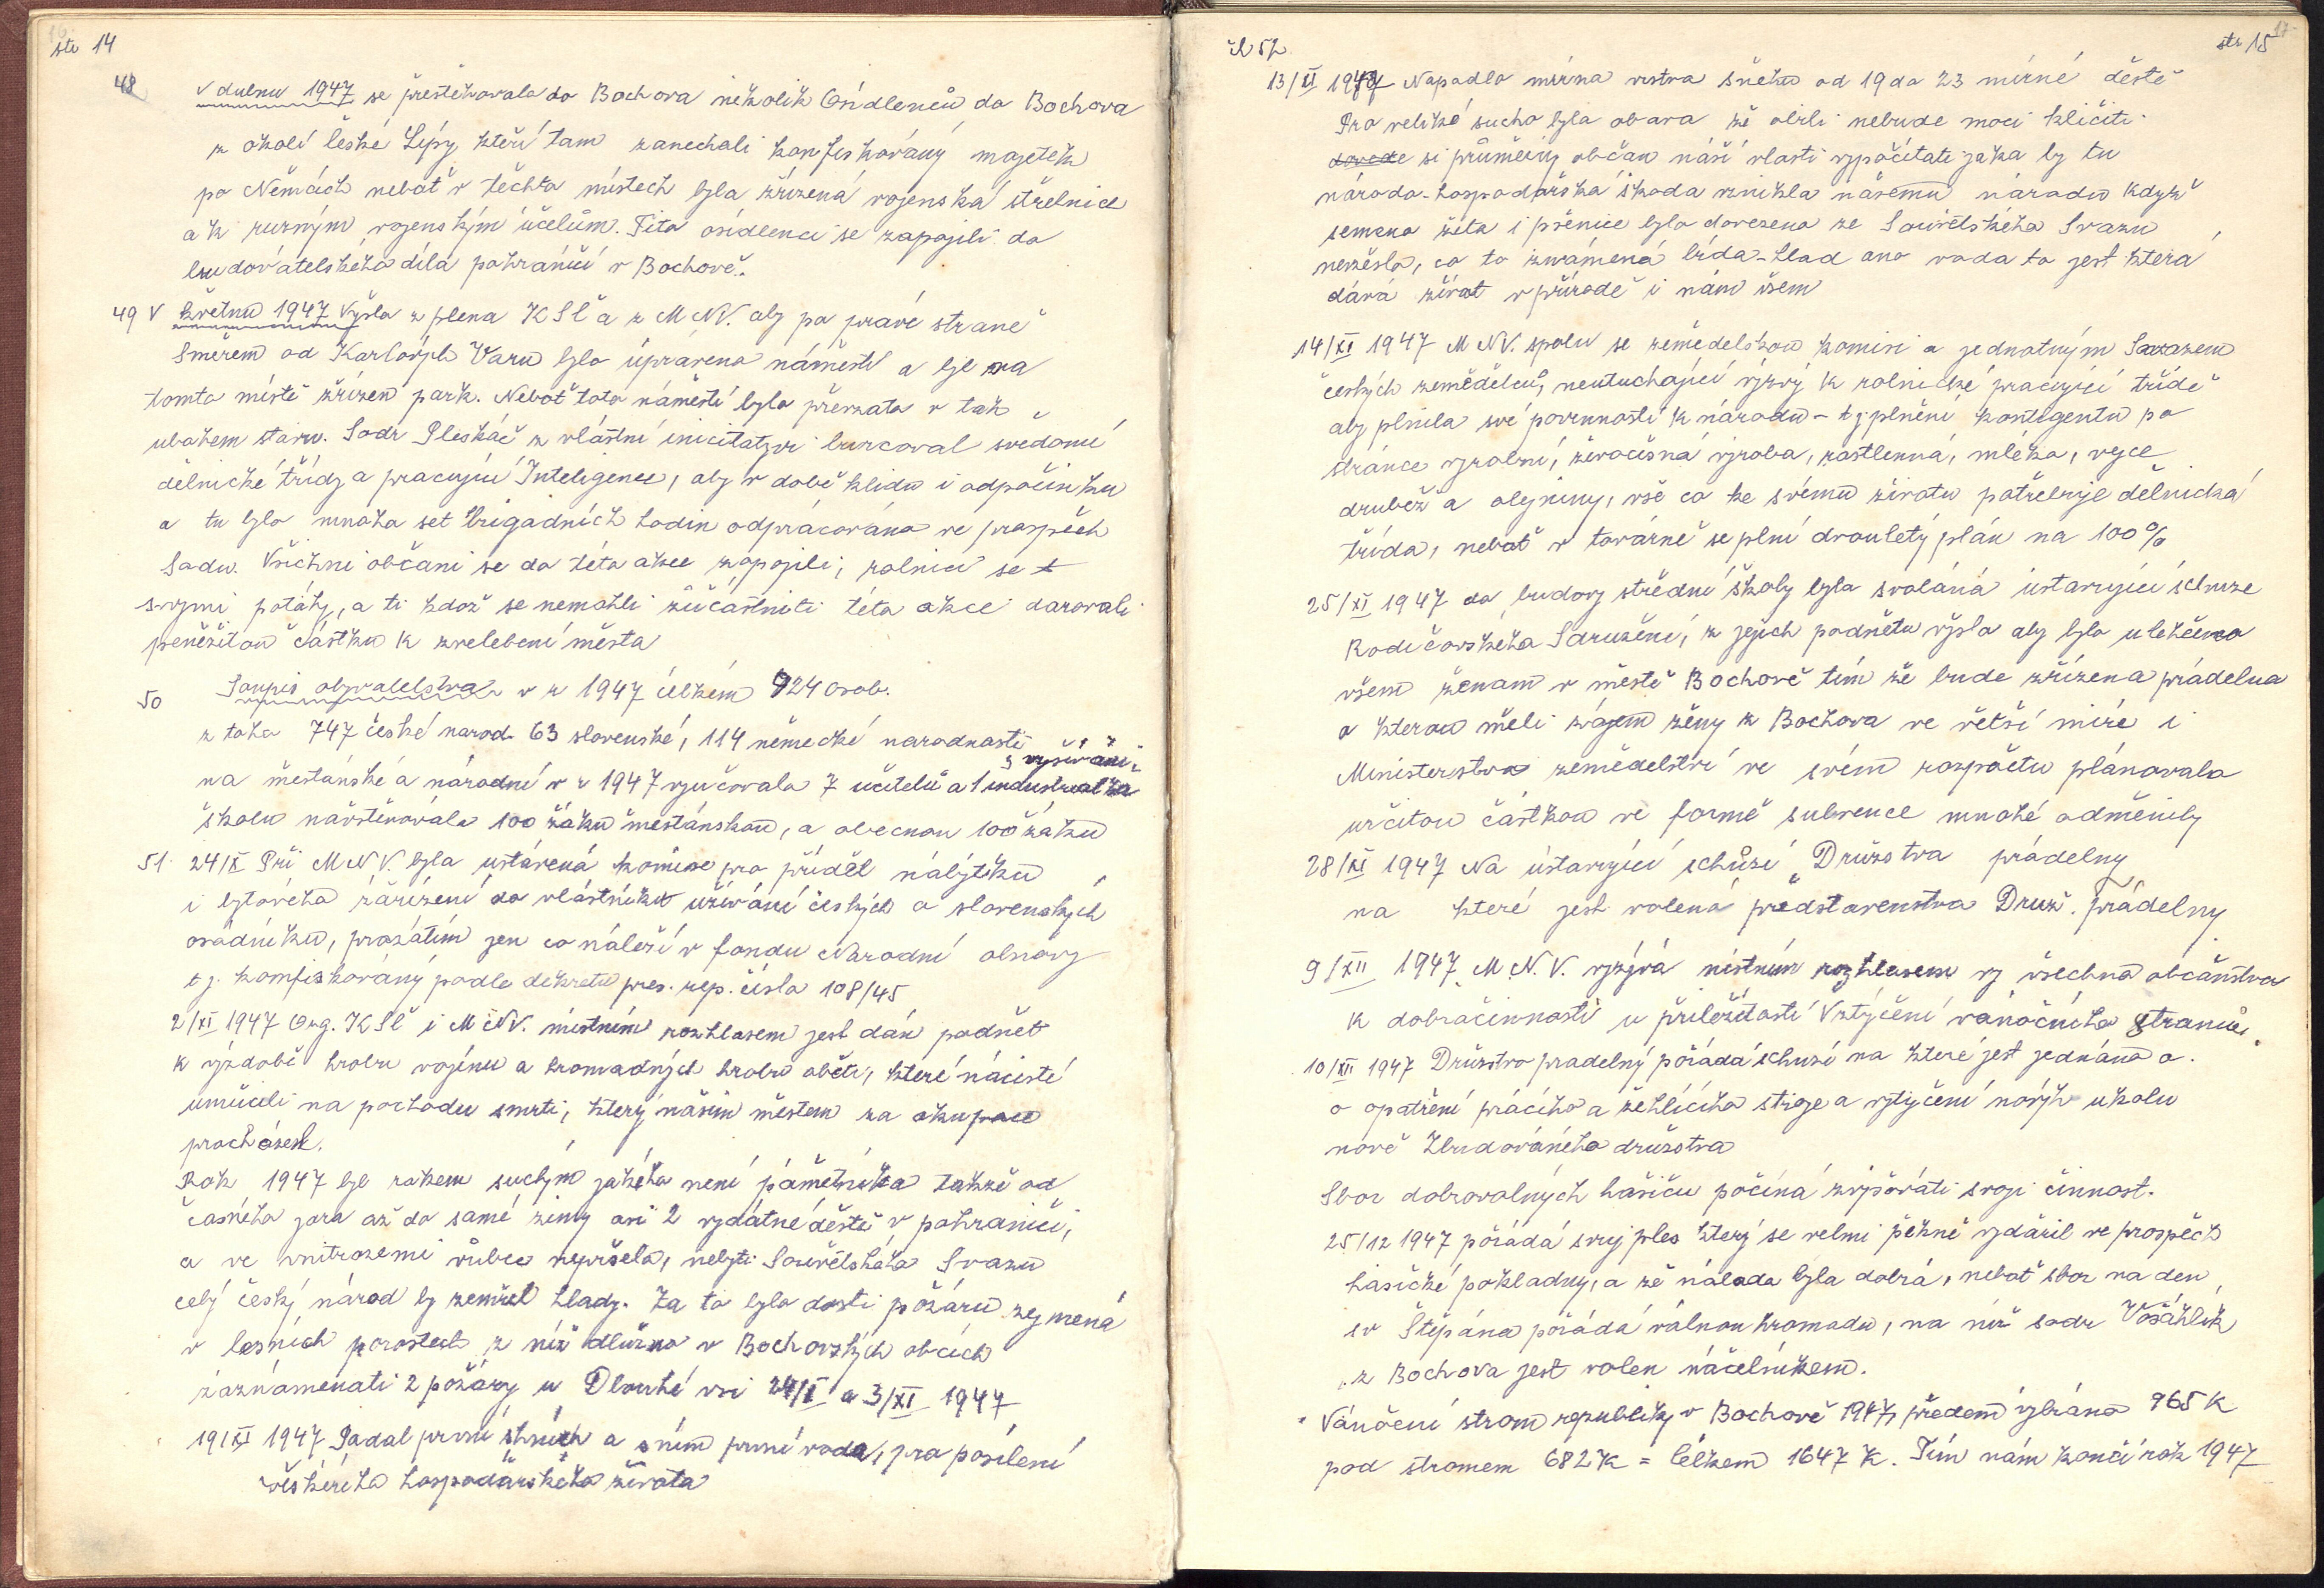 str 14
48 v dubnu 1947 se přestěhovalo do Bochova několik Osídlenců do Bochova
z okolí české Lípy kteří tam zanechali konfiskováný majetek
po Němcích neboť v těchto místech byla zřízená vojenská střelnice
a k různým vojenským účelům. Tito osídlenci se zapojili do
budovátelského díla pohráničí v Bochově.
49 V květnu 1947 Vyšla z plena KSČ a z M N V. aby po právé straně
Směrem od Karlovýh Varu bylo úpraveno náměstí a byl na
tomto místě zřízen park. Neboť toto náměstí bylo převzato v tak
ubohem stavu. Soudr Pleskáč z vlástní inicitativi burcoval svědomí
dělnické třídy a pracující Inteligence, aby v době klidu i odpočinku
a tu bylo mnoho set brigádních hodin odprácováno ve prospěch
Sadu. Všichni občani se do této akce zapojili, rolnici se
svymi potáhy, a ti kdož se nemohli zůčastniti této akci darovali
peněžitou částku k zvelebení města
50 Soupis obyvatelstva v r 1947 célkém 924 osob.
z toho 747 české národ. 63 slovenské, 114 německé národnosti
na meštánské a národní v r 1947 vyučovalo 7 učitelů a 1 industrialka
vyšívání
školu návštěvovalo 100 žáku meštánskou, a obecnou 100 žáku
51 24/X Při M N V. byla ustávená komise pro příděl nábytku
i bytového zářízení do vlástníku užívání českých a slovenských
osádníku, prozátím jen co náleží v fondu Národní obnovy
t j. komfiskováný podle dekretu pres. rep. čísla 108/45
2/XI 1947 Org. KSČ i M N V. místním rozhlasem jest dán podnět
k výzdobě hrobu vojínu a hromadných hrobu obětí, které nácisté
umučeli na pochodu smrti, který nášim městem za okupace
procházel.
Rok 1947 byl rokem suchým jakého není pámětníka takže od
časného jara až do samé zimy asi 2 vydátné děště v pohraničí,
a ve vnitrozemi vůbec nepršelo, nebýti Sovětského Svazu
celý český národ by zemřel hlady. Za to bylo dosti požáru zejmená
v lesních porostech z niž dlužno v Bochovských obcích
záznámenati 2 požáry u Dlouhé vsi 24/I a 3/XI 1947
19/XI 1947 Padal první sníh a sním první voda, pro posílení
věškérého hospodářského života
čl 52
str 15
17
13/XI 1947 Napadlo mírna vrstva sněhu od 19 do 23 mírné děště
Pro veliké sucho byla obava že obili nebude moci kličiti
dovede si průměrný občan náší vlasti vypočítati jaka by tu
národo-hospodařská škoda vznikla našemu národu když
semeno žita i pšenice bylo dovezeno ze Sovětského Svazu
nevzešlo, co to známéná bída-hlad ano voda to jest která
dává život v přírodě i nám všem
14/XI 1947 M N V. spolu se zemědelskou komisi a jednotným Svazem
českých zemědělců, neutuchající výzvy k rolnické pracující třídě
aby plnila své povinnosti k národu - t j plnění kontigentu po
stránce výrobní, živočišná výroba, rostlenná, mléko, vejce
drubež a olejniny, vše co ke svému životu potřebuje dělnická
třída, neboť v továrně se plní dvouletý plán na 100%
25/XI 1947 do budovy střední školy byla svoláná ustavující schuze
Rodičovského Sdružení, z jejich podnětu výšla aby bylo ulehčeno
všem ženam v městě Bochově tím že bude zřízena prádelna
o kterou měli zájem ženy z Bochova ve větší míře i
Ministerstvo zemědelství ve svém rozpočtu plánovalo
určitou částkou ve formě subvence mnohé odměnily
28/XI 1947 Na ústavující schůzi „Družstva prádelny
na které jest volená představenstvo Druž. prádelny
9/XII 1947 M N. V. vyzývá místním rozhlasem vy všechno občanstvo
k dobročinnosti u příležitosti Vztýčení vánočního stromu.
10/XII 1947 Družstvo pradelný pořádá schuzi na které jest jednáno o.
o opatření prácího a žehlícího stroje a vytyčení nových ukolu
nově zbudováného družstva
Sbor dobrovolných hasiču počíná zvýšováti svoji činnost.
25/12 1947 pořádá svuj ples který se velmi pěkně vydařil ve prospěch
hasičké pokladny, a že nálada byla dobrá, neboť sbor na den
sv Štěpána pořádá válnou hromadu, na níž soudr Vošáhlík
z Bochova jest volen náčelníkem.
Vánoční strom republiky v Bochově 1947, předem vybráno 965 K
pod stromem 682 K = Célkem 1647 K. Tím nám končí rok 1947